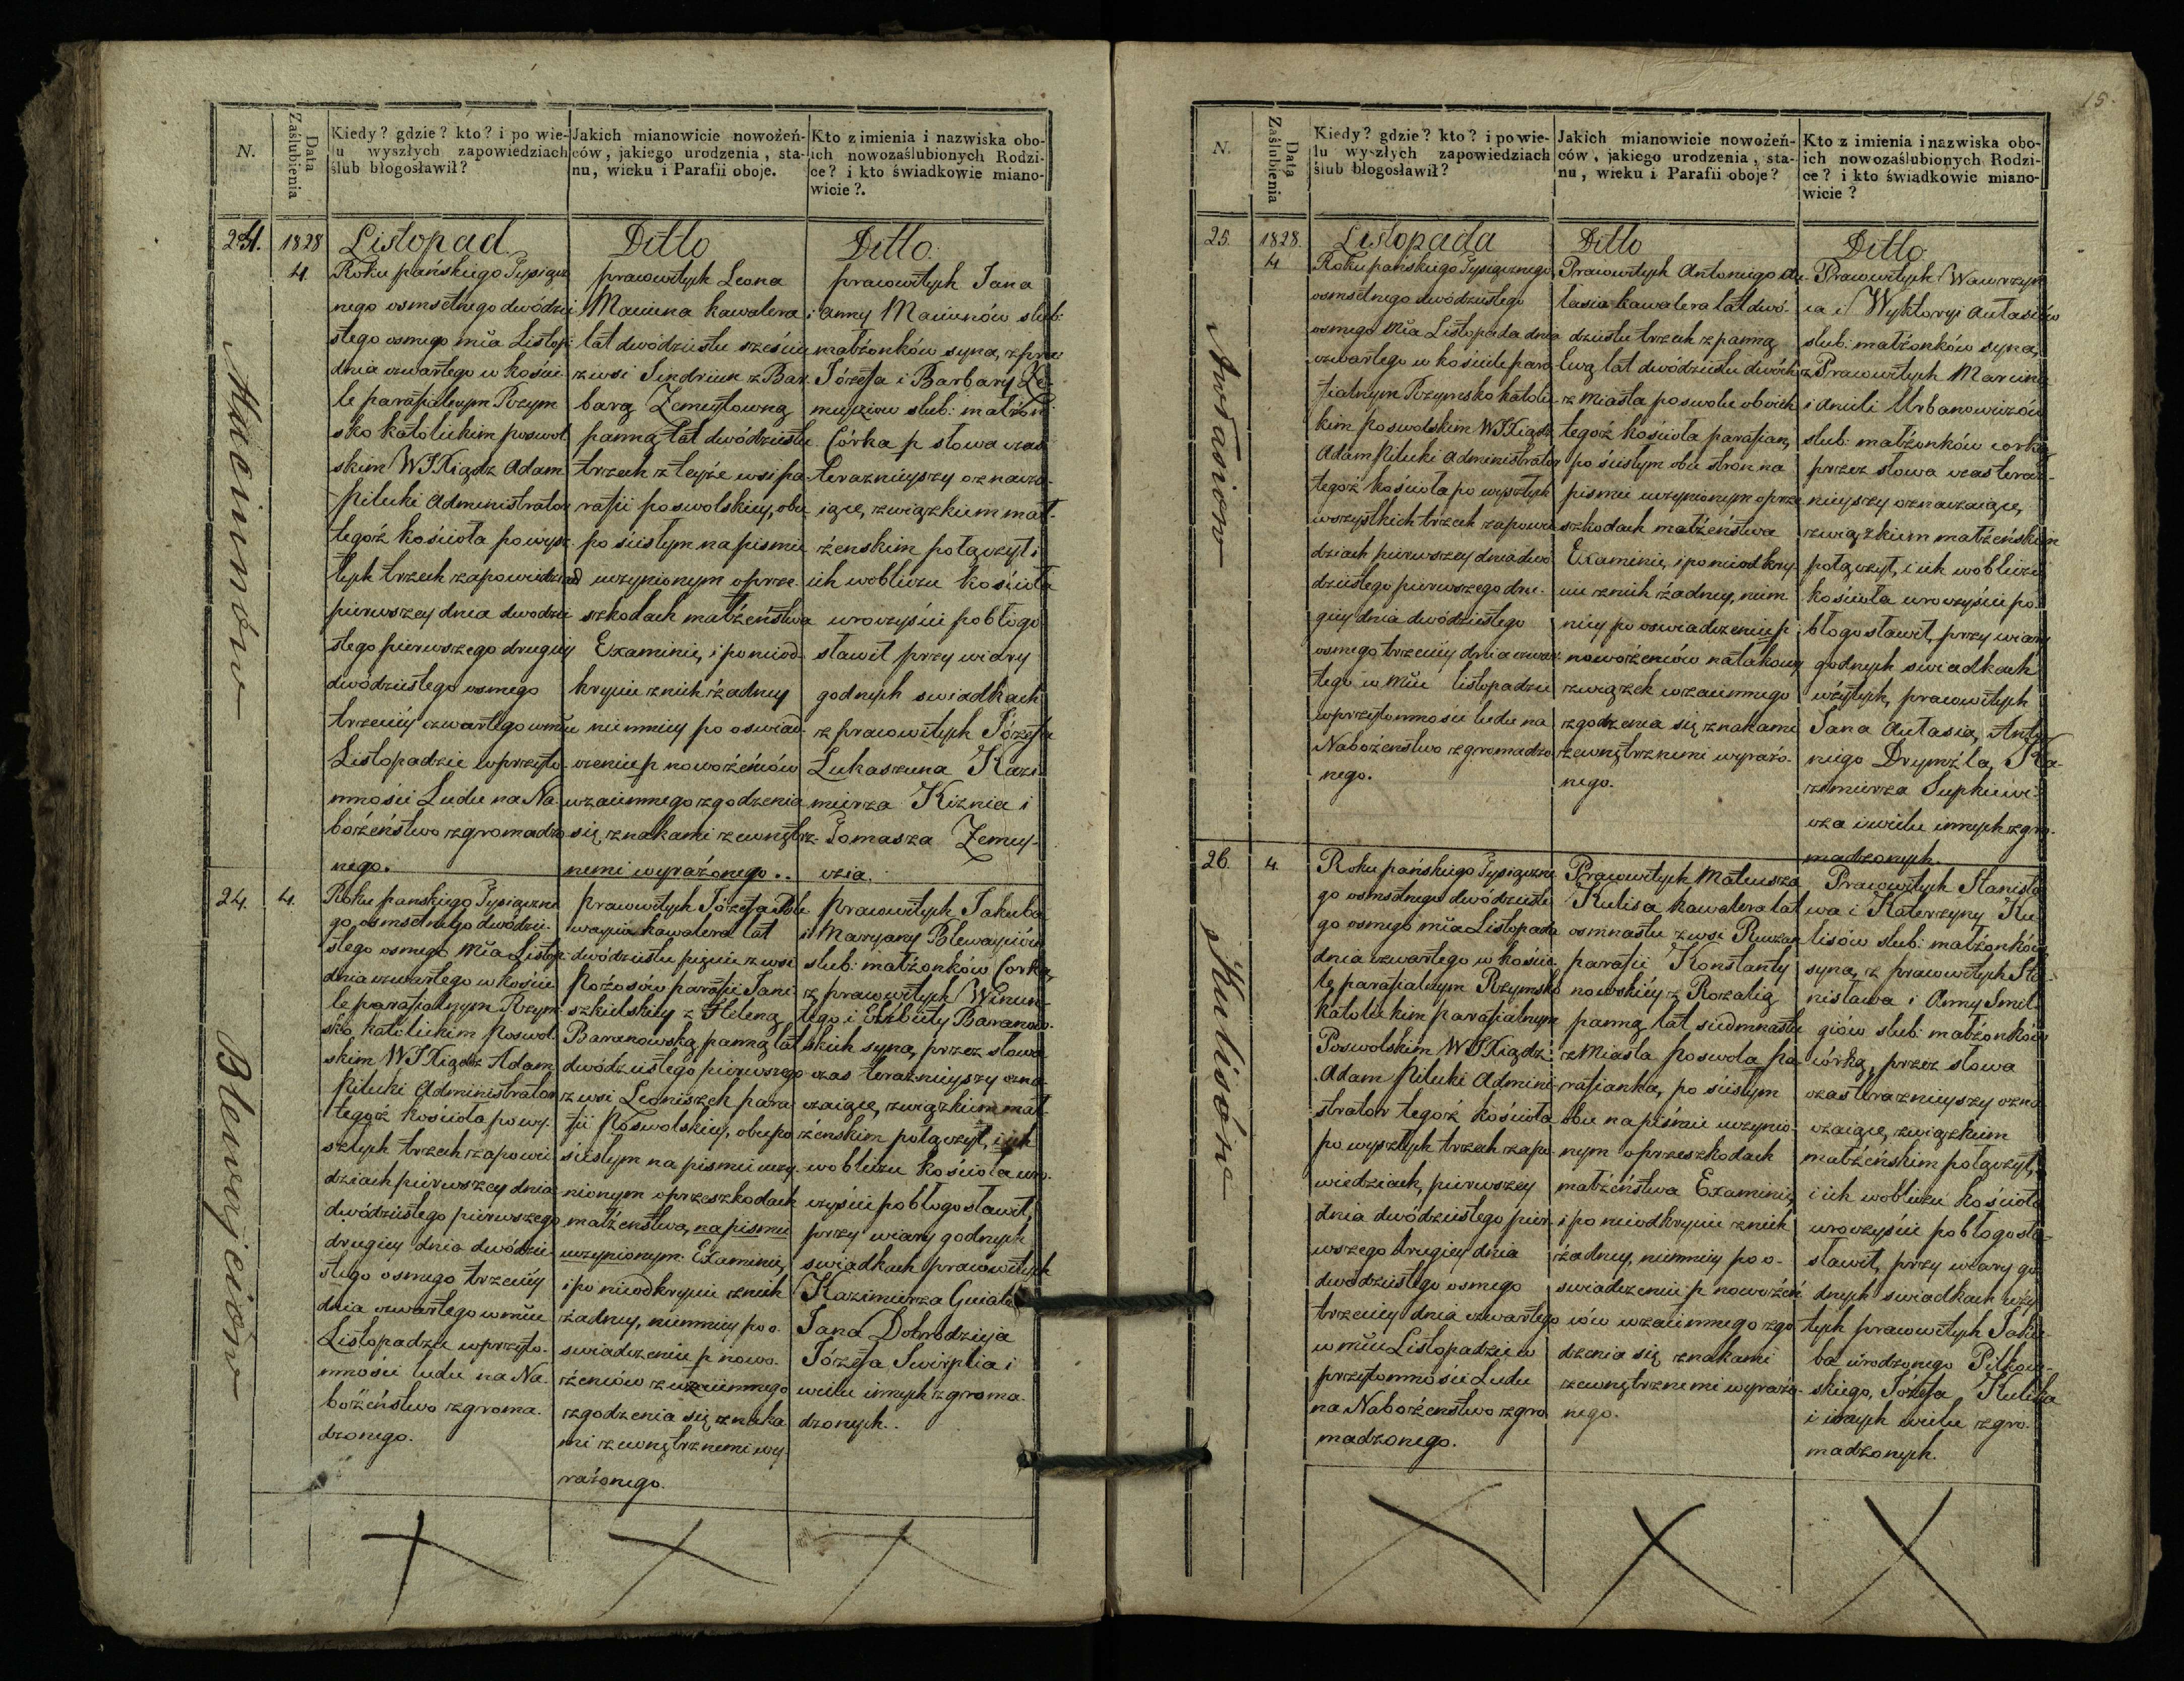 N.
Data Zaślubienia
Kiedy? gdzie? kto? i po wie-
lu wyszłych zapowiedziach
ślub błogosławił?
Jakich mianowicie nowożeń-
ców, jakiego urodzenia, sta-
nu, wieku i Parafii oboje.
Kto z imienia i nazwiska obo-
ich nowozaślubionych Rodzi-
ce? i kto świadkowie miano-
wicie?.
1828
4
Maciunów
Listopad
Roku pańskiego Tysiącz
nego osmsetnego dwódzie
stego osmego mśa Listop:
dnia czwartego w koście
le parafialnym Rzym
sko katolickim poswol
skim WJXiądz Adam
Pilecki Administrator
tegoż kościoła po wysz
łych trzech zapowiedziach
pierwszey dnia dwodzie
stego pierwszego drugiey
dwódziestego osmego
trzeciéy czwartego w mśu
Listopadzie w przyto
mności Ludu na Na
bożeństwo zgromadzo
nego.
Ditto
prawowitych Leona
Maciuna kawalera
lat dwódziestu sześciu
z wsi z Bar
barą
panną lat dwódziestu
trzech z teyże wsi pa
rafii poswolskiey, obu
po ścisłym na pismie
uczynionym o prze
szkodach małżeństwa
Examinie, i po nieod
kryciu z nich żadney
niemniey po oswiad
czeniu p nowożeńców
wzaiemnego zgodzenia
się znakami zewnętrz
nemi wyrażonego..
Ditto.
prawowitych Jana
i Anny Maciunów slub:
małżonków syna, z praw
Józefa i Barbary
slub: małżon:
Córka p słowa czas
teraznieyszy oznacza
iące, związkiem mał-
żenskim połączył i
ich wobliczu kościoła
uroczyście pobłogo
sławił przy wiary
godnych swiadkach
z prawowitych Józefa
Łukaszuna Kazi
mierza Kiznia i
Tomasza
24.
4.
Blewayciów
Roku panskiego Tysiączne
go osmsetnego dwódzie-
stego osmego mśa Listop:
dnia czwartego w koście
le parafialnym Rzym
sko katolickim Poswol
skim WJXiądz Adam
Pilecki Administrator
tegoż kościoła po wy-
szłych trzech zapowie
dziach pierwszey dnia
dwódziestego pierwszego
drugiey dnia dwódzie
stego osmego trzeciéy
dnia czwartego w mśu
Listopadzie w przyto-
mności ludu na Na-
bożeństwo zgroma-
dzonego.
prawowitych Józefa Ble
waycia kawalera lat
dwódziestu pięciu z wsi
Pożosów parafii Jani
szkielskiey z Heleną
Baranowską panną lat
dwódziestego pierwszego
z wsi Leoniszek para
fii Poswolskiey, obu po
ścisłym na pismie uczy
nionym o przeszkodach
małżenstwa, na pismu
uczynionym Examinie,
i po nieodkryciu z nich
żadney, niemniey po o-
swiadczeniu p nowo
żeńców z wzaiemnego
zgodzenia się znaka
mi zewnętrznemi wy-
rażonego.
prawowitych Jakuba
i Maryany Blewayciów
slub: małżonków Corka,
z prawowitych Wincen
tego i Elżbiety Baranow-
skich syna, przez słowa
czas teraznieyszy ozna
czaiące, związkiem mał
żenskim połączył, i ich
wobliczu kościoła uro-
czyście pobłogosławił,
przy wiary godnych
swiadkach prawowitych
Kazimierza
Jana Dobrodzieja
Józefa i
wielu innych zgroma
dzonych.
15.
N.
Data Zaślubienia
Kiedy? gdzie? kto? i po wie-
lu wyszłych zapowiedziach
ślub błogosławił?
Jakich mianowicie nowożeń-
ców, jakiego urodzenia, sta-
nu, wieku i Parafii oboje?
Kto z imienia i nazwiska obo-
ich nowozaślubionych Rodzi-
ce? i kto świadkowie miano-
wicie?
25.
1828.
4
Autasiów
Listopada
Roku pańskiego Tysiącznego
osmsetnego dwódziestego
osmego mśa Listopada dnia
czwartego w kościele para
fialnym Rzymsko katolic
kim Poswolskim WJXiądz
Adam Pilecki Administrator
tegoż kościoła po wyszłych
wszystkich trzech zapowie
dziach pierwszey dnia dwó
dziestego pierwszego dru-
giey dnia dwódziestego
osmego trzeciéy dnia czwar
tego w mśu listopadzie
w przytomności ludu na
Nabożeństwo zgromadzo
nego.
Ditto
Prawowitych Antoniego Au
tasia kawalera lat dwó-
dziestu trzech z panną
Ewą lat dwódziestu dwóch
z Miasta poswola oboich
tegoż kościoła parafian,
po ścisłym obu stron na
pismie uczynionym o prze
szkodach małżeństwa
Examinie, i po nieodkry-
ciu z nich żadney, niem
niey po oswiadczeniu p
nowożeńców na takowy
związek wzaiemnego
zgodzenia się znakami
zewnętrznemi wyrażo-
nego.
Ditto
Prawowitych Wawrzyń
ca i Wiktoryi Autasiów
slub: małżonków syna,
z Prawowitych Marcina
i Anieli Urbanowiczów
slub: małżonków corką
przez słowa czas teraz-
nieyszy oznaczaiące,
związkiem małżeńskim
połączył, i ich wobliczu
kościoła uroczyście po-
błogosławił, przy wiary
godnych swiadkach
użytych, prawowitych
Jana Autasia, Anto-
niego Drymźla, Ka-
zimierza
cza i wielu innych zgro-
madzonych.
26.
4.
Kulisów
Roku pańskiego Tysiączne
go osmsetnego dwódzieste
go osmego mśa Listopada
dnia czwartego w koście
le parafialnym Rzymsko
katolickim parafialnym
Poswolskim WJXiądz
Adam Pilecki Admini
strator tegoż kościoła
po wyszłych trzech zapo
wiedziach, pierwszey
dnia dwódziestego pier
wszego drugiey dnia
dwódziestego osmego
trzeciey dnia czwartego
w mśu Listopadzie w
przytomności Ludu
na Nabożeństwo zgro
madzonego.
Prawowitych Mateusza
Kulisa kawalera lat
osmnastu z wsi
parafii Konstanty
nowskiéy z Rozalią
panną lat siedmnastu
z Miasta Poswola pa
rafianką, po ścisłym
obu na piśmie uczynio
nym o przeszkodach
małżeństwa Examinie,
i po nieodkryciu z nich
żadney, niemniey po o-
swiadczeniu p nowożeń
ców wzaiemnego zgo
dzenia się znakami
zewnętrznemi wyrażo-
nego.
Prawowitych Stanisła
wa i Katerzyny Ku
lisów slub: małżonków
syna, z prawowitych Sta-
nisława i Anny Smil
giów slub: małżonków
córką, przez słowa
czas teraznieyszy ozna
czaiące, związkiem
małżeńskim połączył,
i ich wobliczu kościoła
uroczyście pobłogosła-
sławił, przy wiary go
dnych swiadkach uży
tych prawowitych Jaku-
ba urodzonego
skiego, Józefa Kulisa
i innych wielu zgro-
madzonych.